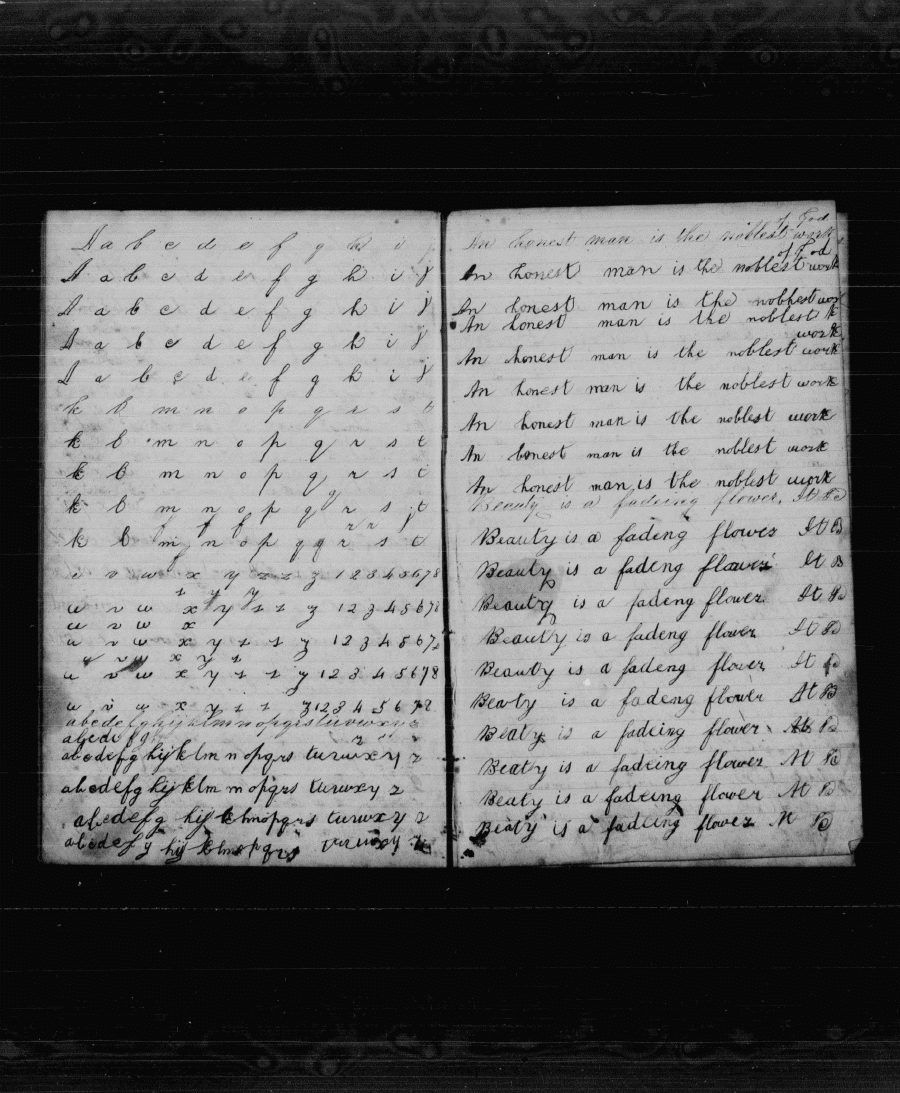 A a b c d e f g h i j
A a b c d e f g h i j
A a b c d e f g h i j
A a b c d e f g h i j
A a b c d e f g h i j
k l m n o p q r s t
k l m n o p q r s t
k l m n o p q r s t
k l m n o p q r s t
k l m n o p q q r s t
u v w x y z z z 12345678
u v w x y z z z 12345678
u v w x
u v w x y z z z 1234567
u v w x y z
u v w x y z z z 12345678
u v w x y z z z 12345678
abcdefghijklmnopqrstuvwxyz
abcdefg
abcdefghijklmnopqrs tuvwxyz
abcdefg hijklm nopqrs tuvwxyz
abcdefg hijklmnopqrs tuvwxyz
abcdefg hijklmnopqrs vuvwxyz
of God
An honest man is the noblest work
of God
An honest man is the noblest work
An honest man is the noblest work
An honest man is the noblest
work
An honest man is the noblest work
An honest man is the noblest work
An honest man is the noblest work
An honest man is the noblest work
An honest man is the noblest work
Beauty is a fadeing flower, St
Beauty is a fadeng flower St B
Beauty is a fadeng flower St B
Beauty is a fadeng flower St
Beauty is a fadeng flower St
Beauty is a fadeng flower St
Beaty is a fadeng flower St B
Beaty is a fadeing flower
Beaty is a fadeing flower
Beuty is a fadeing flower
Beaty is a fadeing flower